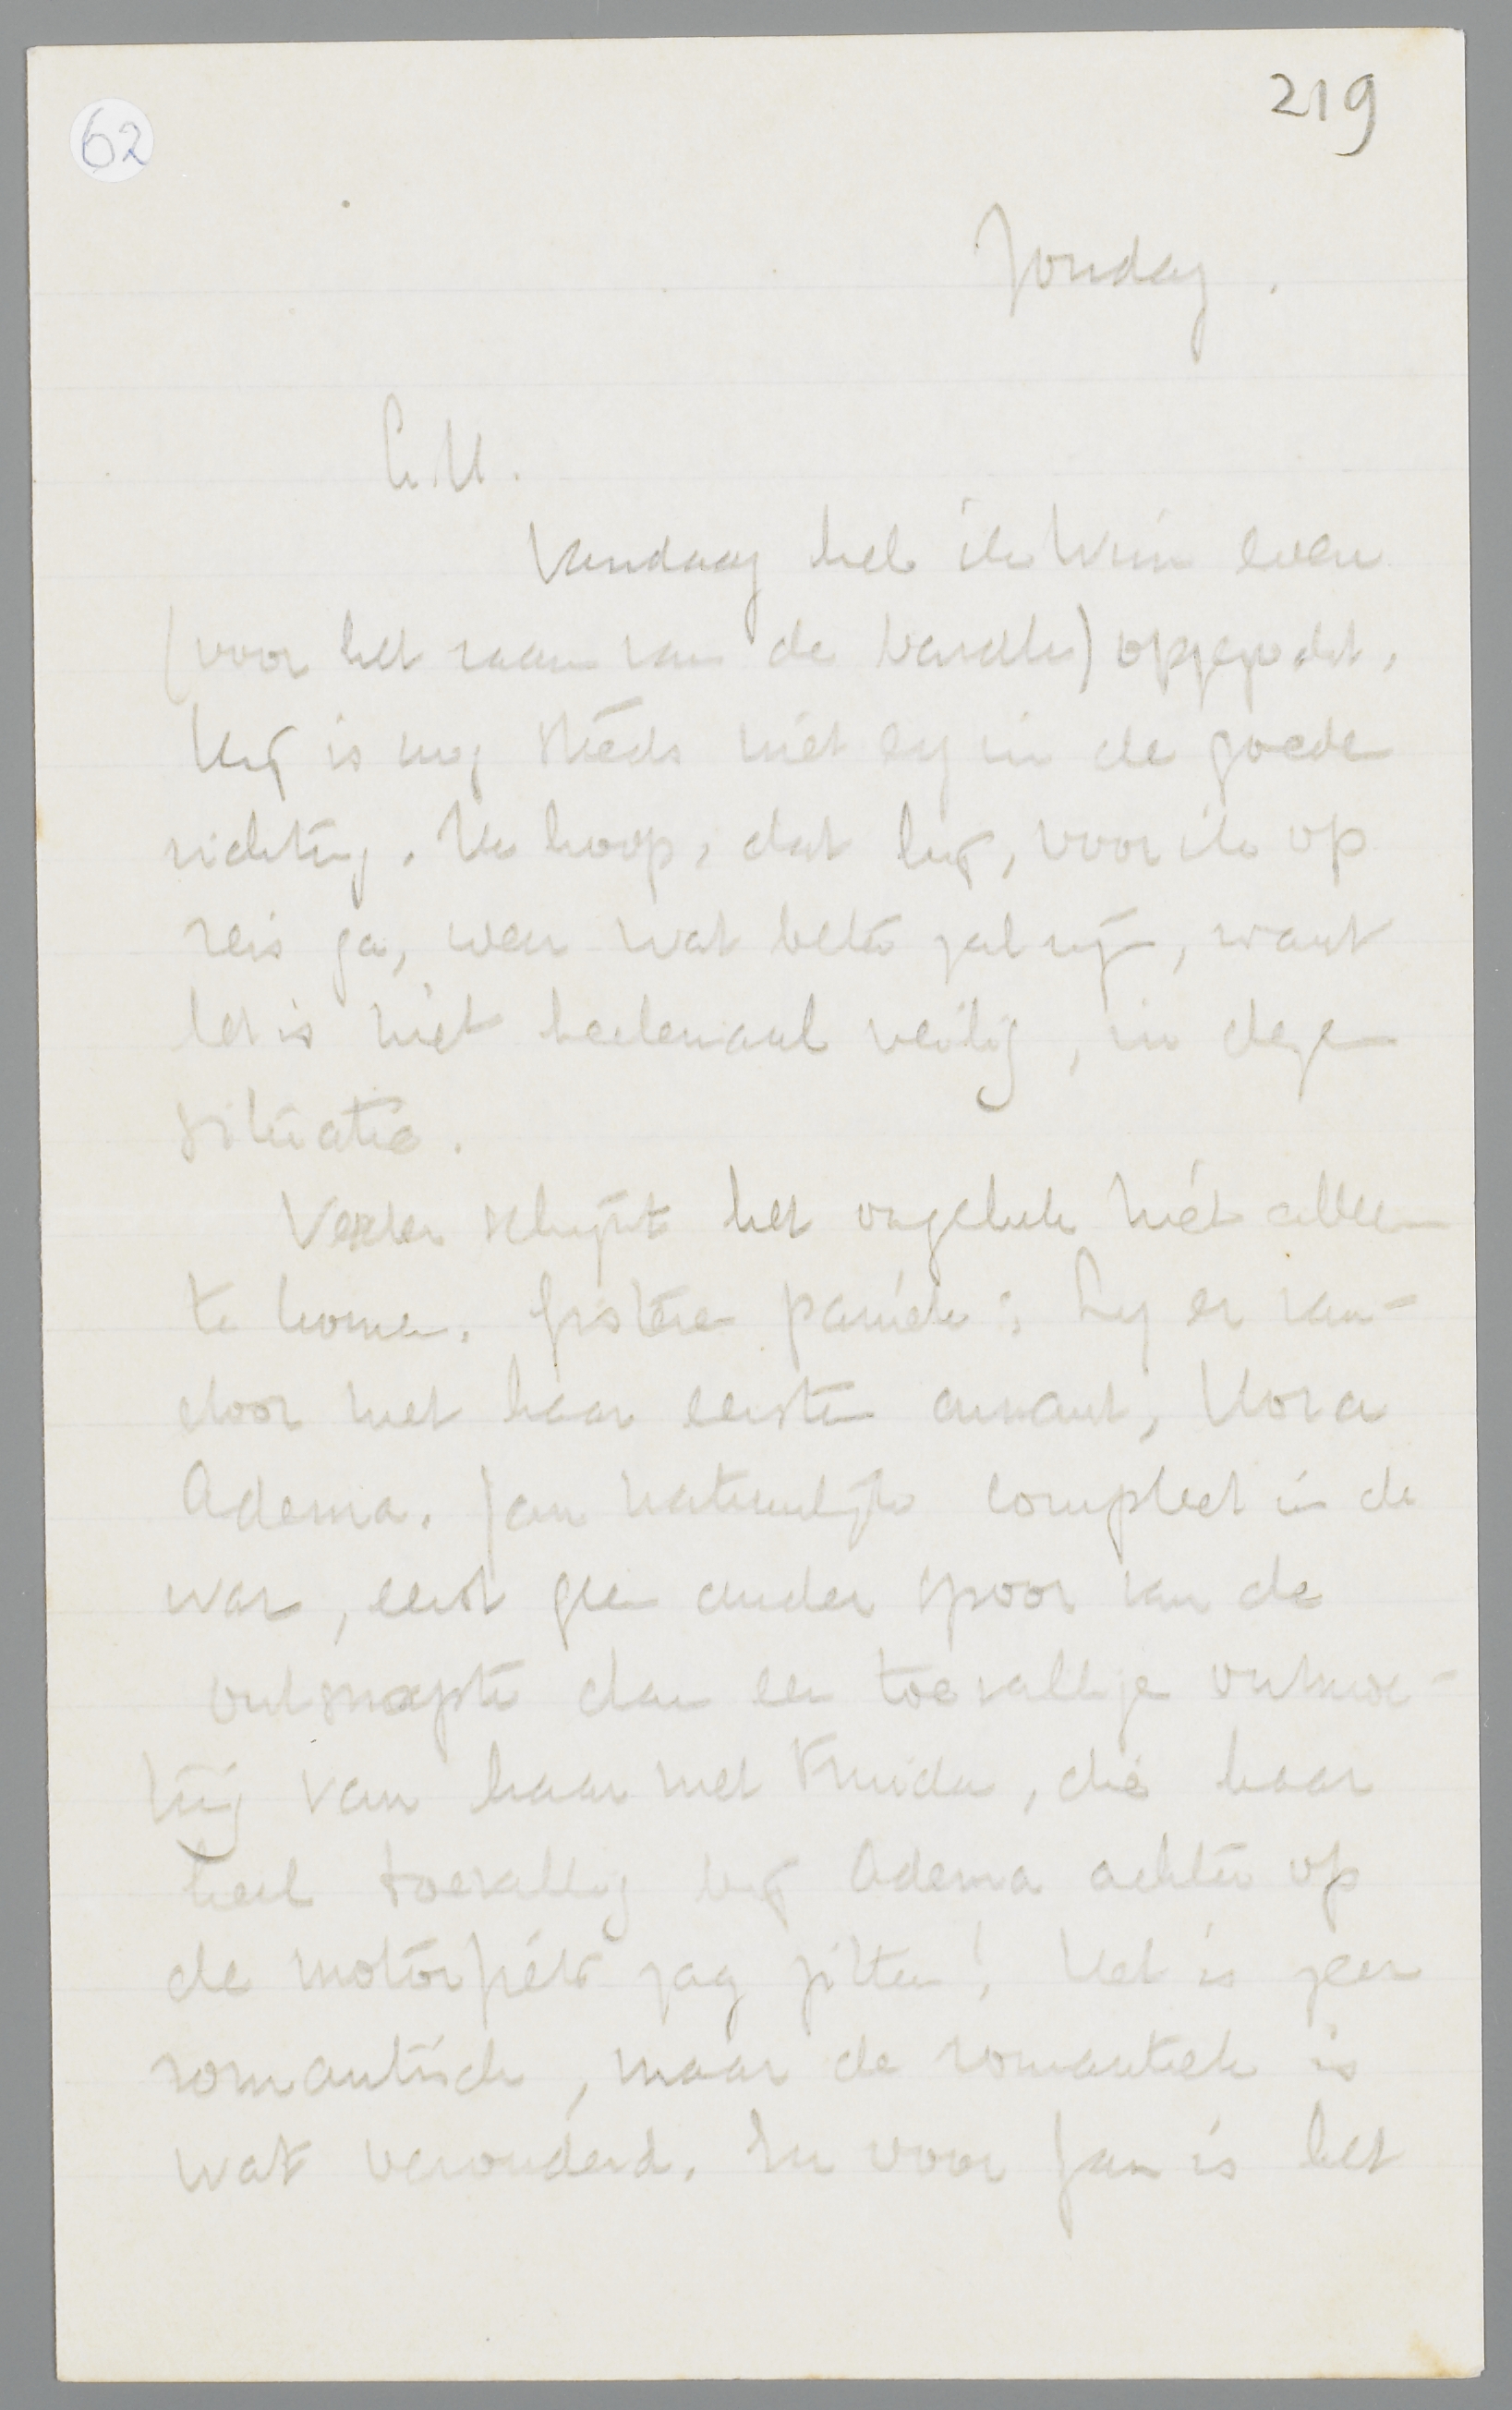 219
62
Zondag.
L.M.
Vandaag heb ik Wim even
(voor het raam van de barak) opgezocht.
Hij is nog steeds niet erg in de goede
richting. Ik hoop, dat hij, voor ik op
reis ga, weer wat beter zal zijn, want
het is niet heelemaal veilig, in deze
situatie.
Verder schijnt het ongeluk niet alleen
te komen. Gisteren paniek: Ly er van-
door met haar eersten amant,
Adema. Jan natuurlijk compleet in de
war, eerst geen ander spoor van de
ontsnapte dan een toevallige ontmoe-
ting van haar met Truida, die haar
heel toevallig bij Adema achter op
de motorfiets zag zitten! Het is zeer
romantisch, maar de romantiek is
wat verouderd. En voor Jan is het